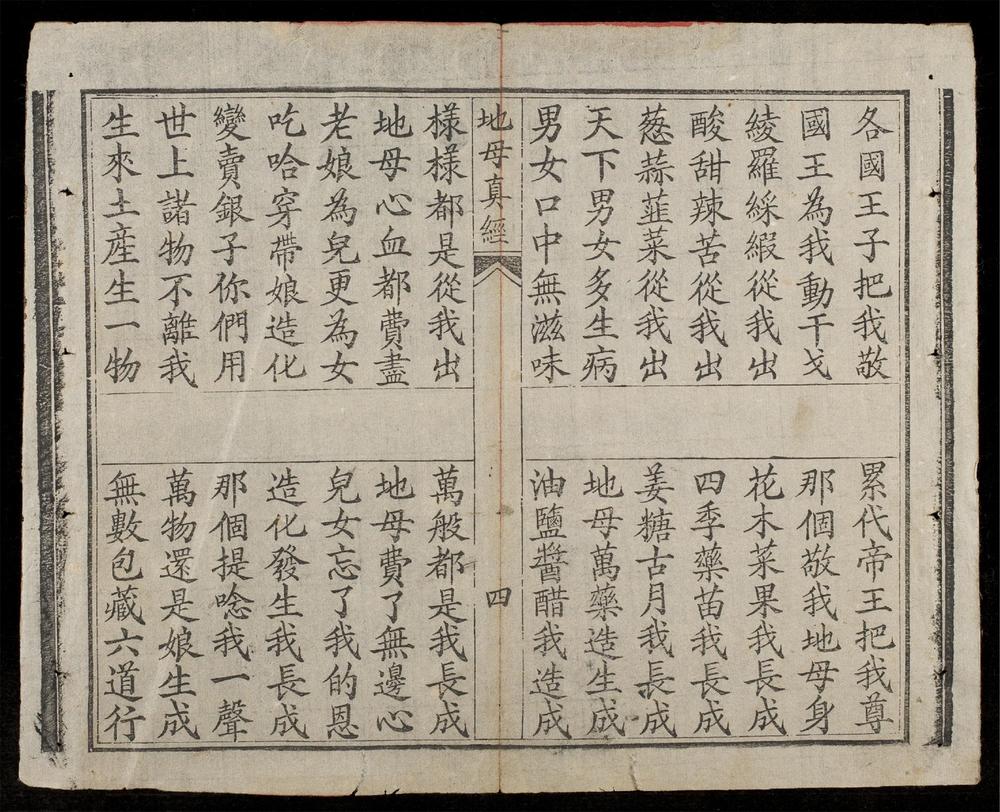 各國王子把我敬　累代帝王把我尊
國王為我動干戈　那個敬我地母身
綾羅綵緞從我出　花木菜果我長成
酸甜辣苦從我出　四季藥苗我長成
葱蒜韮菜從我出　姜糖古月我長成
天下男女多生病　地母萬藥造生成
男女口中無滋味　油鹽醬醋我造成
地母真經　四
樣樣都是從我出　萬般都是我長成
地母心血都費盡　地母費了無邊心
老娘為兒更為女　兒女忘了我的恩
吃哈穿帶娘造化　造化發生我長成
變賣銀子你們用　那個提唸我一聲
世上諸物不離我　萬物還是娘生成
生來土産生一物　無數包藏六道行